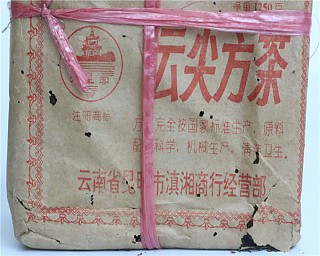 净重:250克
云尖方茶
注册商标
方茶完全按国家标准生产,原料
配制科学,机械生产,清洁卫生。
云南省昆明市滇湘商行经营部